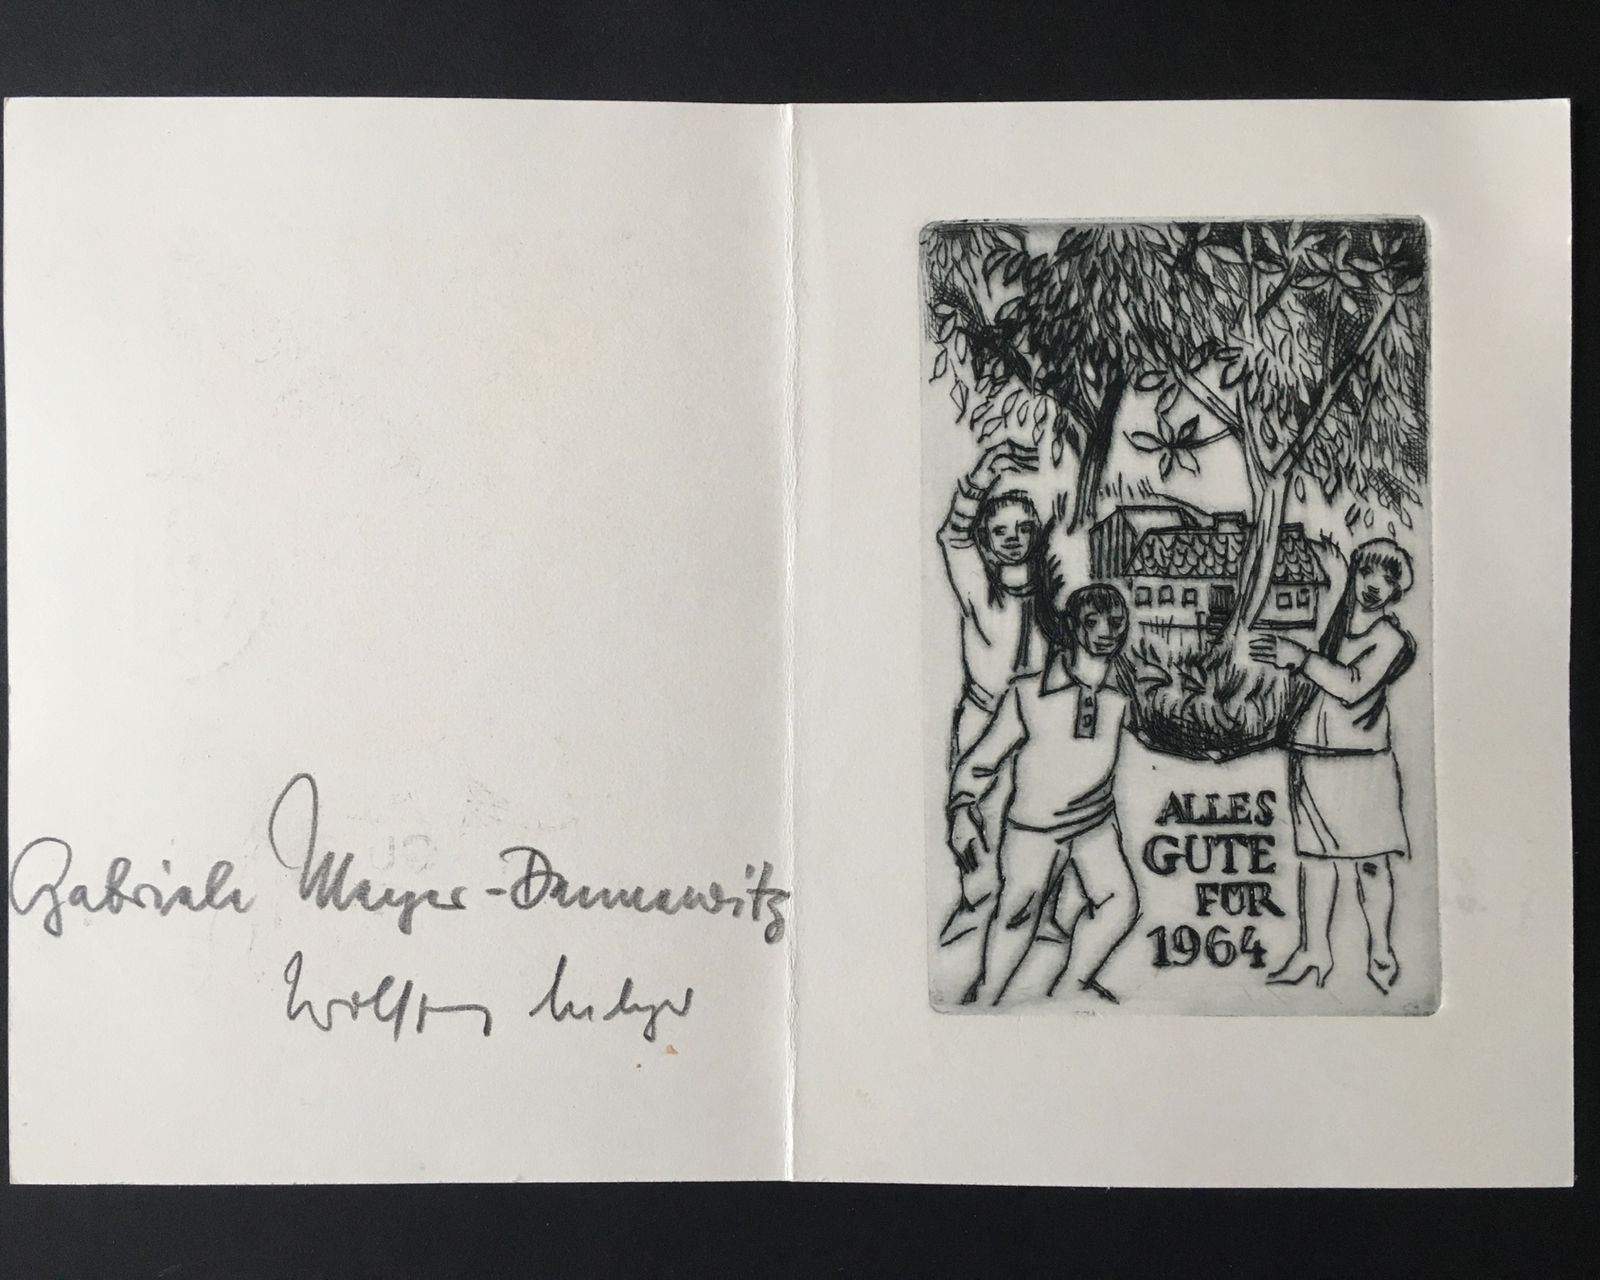 Gabriele Meyer-Dennewitz
Wolfgang Meyer
ALLES
GUTE
FÜR
1964